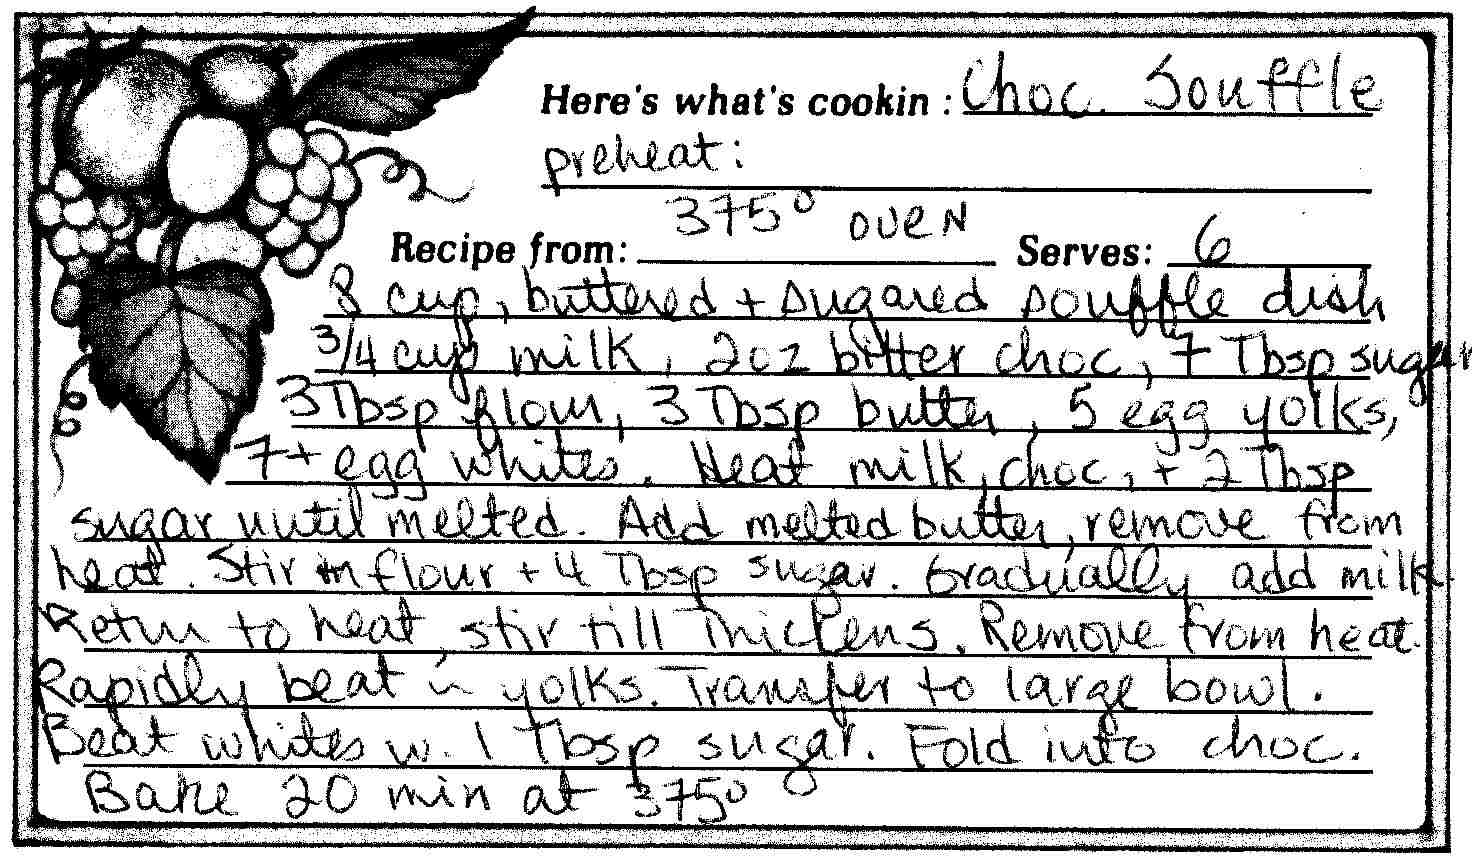 Here's what's cookin : Choc. Souffle
preheat:
375° oven
Recipe from: Serves: 6
8 cup, buttered + sugared souffle dish
3/4 cup milk, 2oz bitter choc, 7 Tbsp sugar
3 Tbsp flour, 3 Tbsp butter, 5 egg yolks,
7+ egg whites. Heat milk, choc, + 2 Tbsp
sugar until melted. Add melted butter, remove from
heat. Stir in flour + 4 Tbsp sugar. Gradually add milk.
Return to heat, stir till thickens. Remove from heat.
Rapidly beat in yolks. Transfer to large bowl.
Beat whites w. 1 Tbsp sugar. Fold into choc.
Bake 20 min at 375°